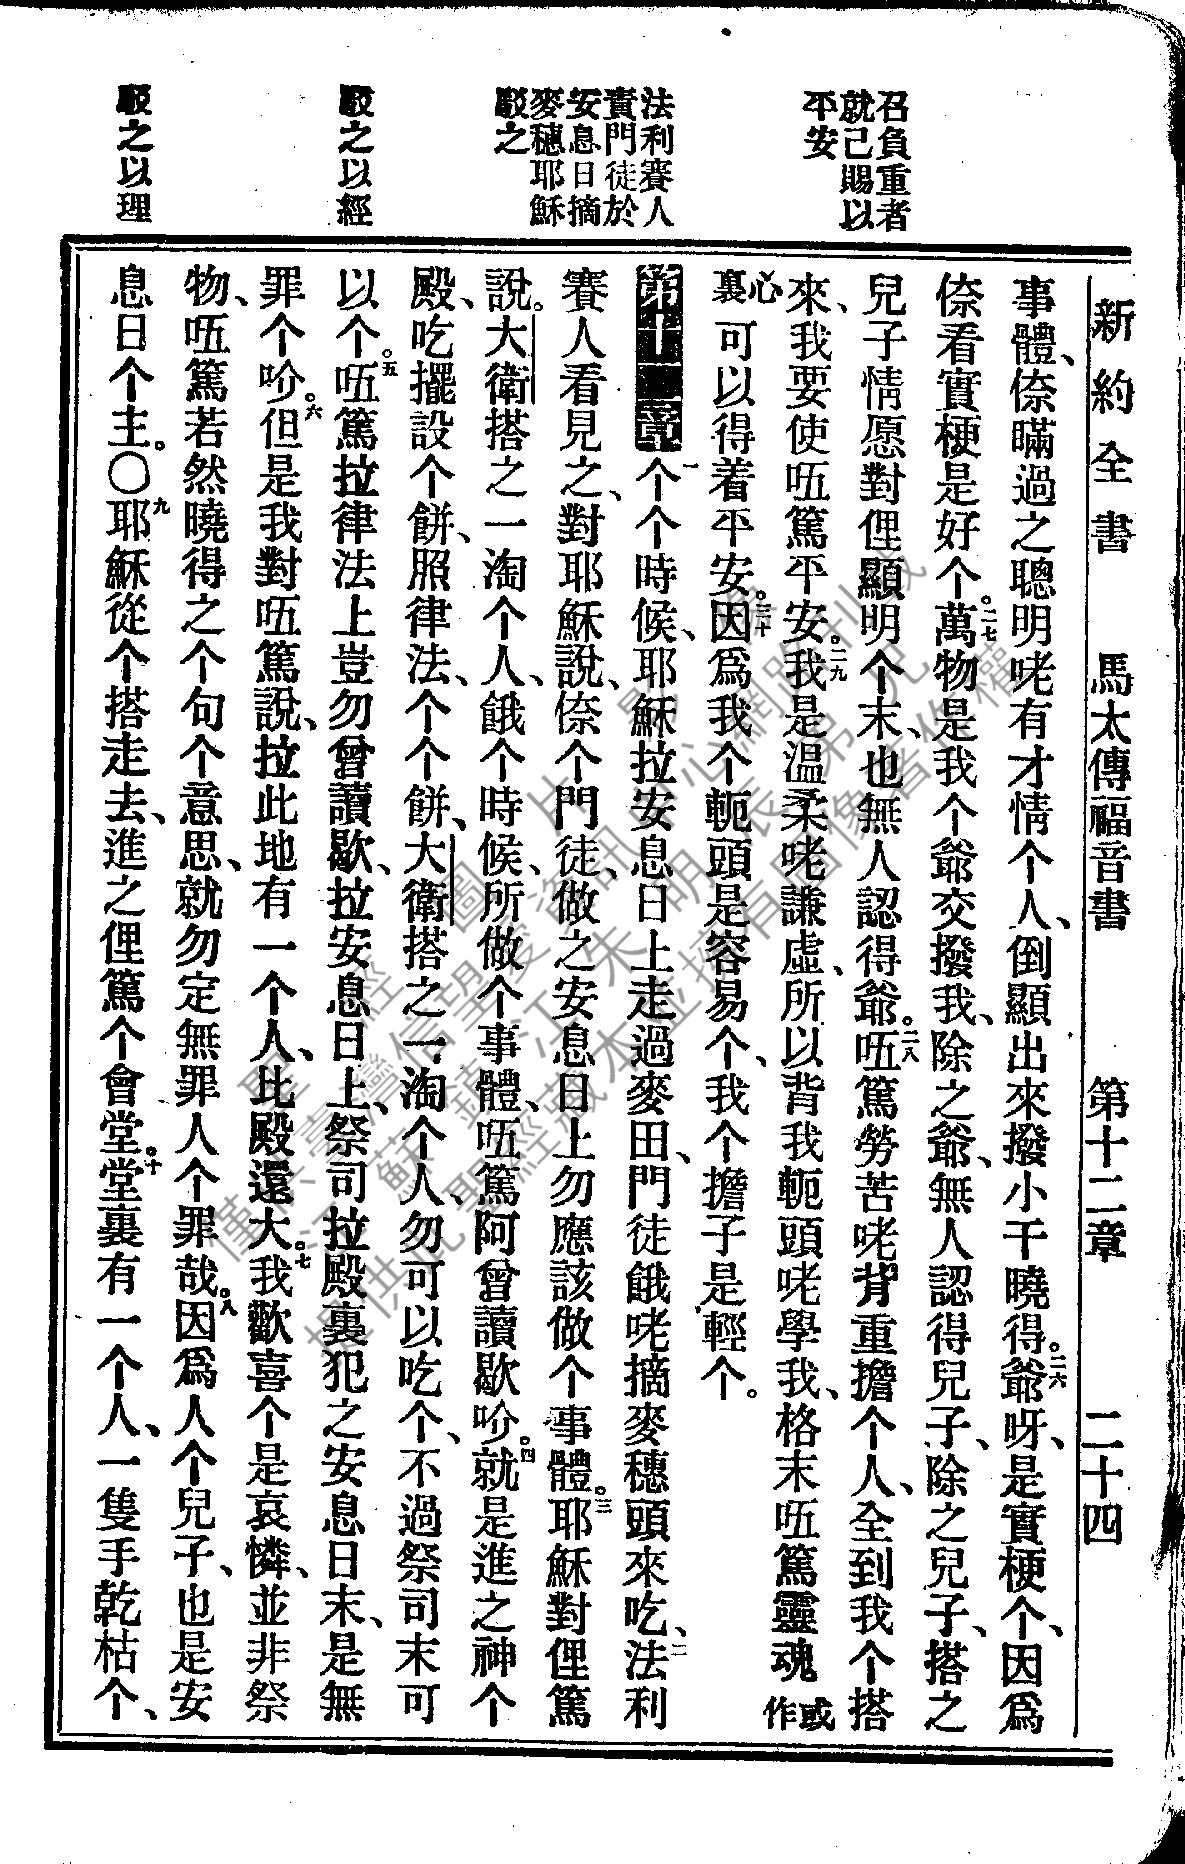 新約全書 馬太傳福音書 第十二章 二十四
召負重者
就己賜以
平安
法利賽人
責門徒於
安息日摘
麥穗耶穌
駁之
駁之以經
駁之以理
事體、倷瞞過之聰明咾有才情个人、倒顯出來撥小干曉得。二六爺呀、是實梗个、因爲
倷看實梗是好个。二七萬物是我个爺交撥我、除之爺、無人認得兒子、除之兒子、搭之
兒子情愿對俚顯明个末、也無人認得爺。二八㑚篤勞苦咾背重擔个人、全到我个搭
來、我要使㑚篤平安。二九我是温柔咾謙虛、所以背我軛頭咾學我、格末㑚篤靈魂或作
心裏可以得着平安。三十因爲我个軛頭是容易个、我个擔子是輕个。
第十二章 一个个時候、耶穌拉安息日上走過麥田、門徒餓咾摘麥穗頭來吃、二法利
賽人看見之、對耶穌說、倷个門徒、做之安息日上勿應該做个事體。三耶穌對俚篤
說。大衛搭之一淘个人、餓个時候、所做个事體、㑚篤阿曾讀歇吤。四就是進之神个
殿、吃擺設个餅、照律法、个个餅、大衛搭之一淘个人、勿可以吃个、不過祭司末可
以个。五㑚篤拉律法上豈勿曾讀歇、拉安息日上、祭司拉殿裏犯之安息日末、是無
罪个吤。六但是我對㑚篤說、拉此地有一个人、比殿還大。七我歡喜个是哀憐、並非祭
物、㑚篤若然曉得之个句个意思、就勿定無罪人个罪哉。八因爲人个兒子、也是安
息日个主。〇九耶穌從个搭走去、進之俚篤个會堂。十堂裏有一个人、一隻手乾枯个、